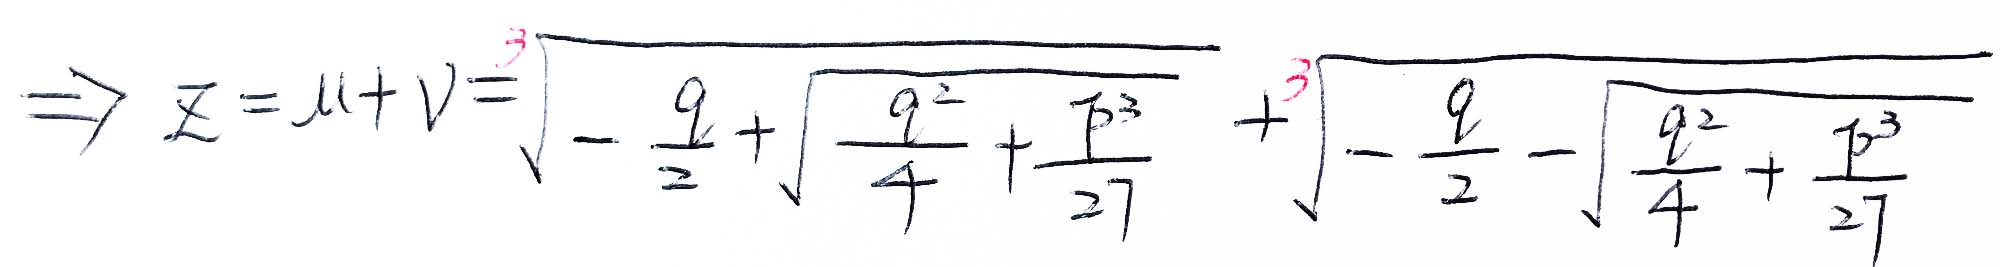 ⇒ z = μ + ν = ∛(-q/2 + √(q²/4 + p³/27)) + ∛(-q/2 - √(q²/4 + p³/27))